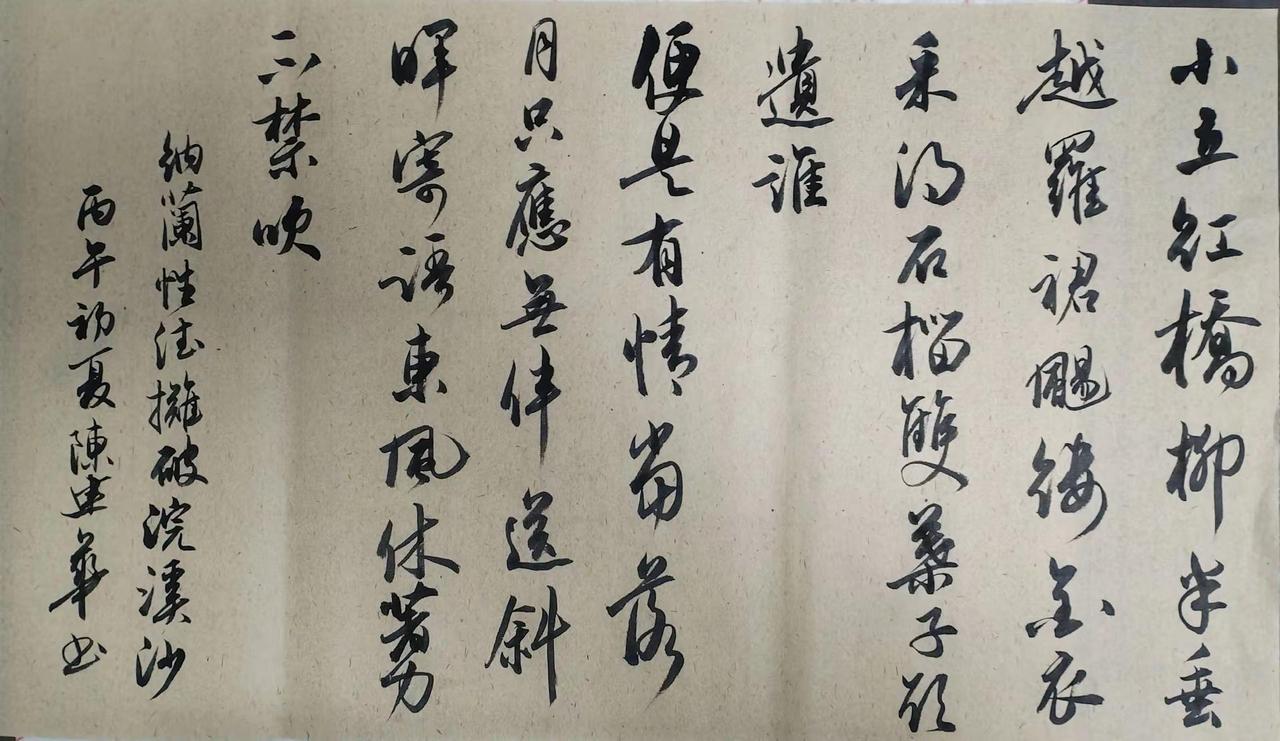 小立紅橋柳半垂
越羅裙颺縷金衣
采得石榴雙葉子欲
遺誰
便是有情當落
月只應無伴送斜
暉寄語東風休著力
不禁吹
納蘭性德攤破浣溪沙
丙午初夏陳建華书